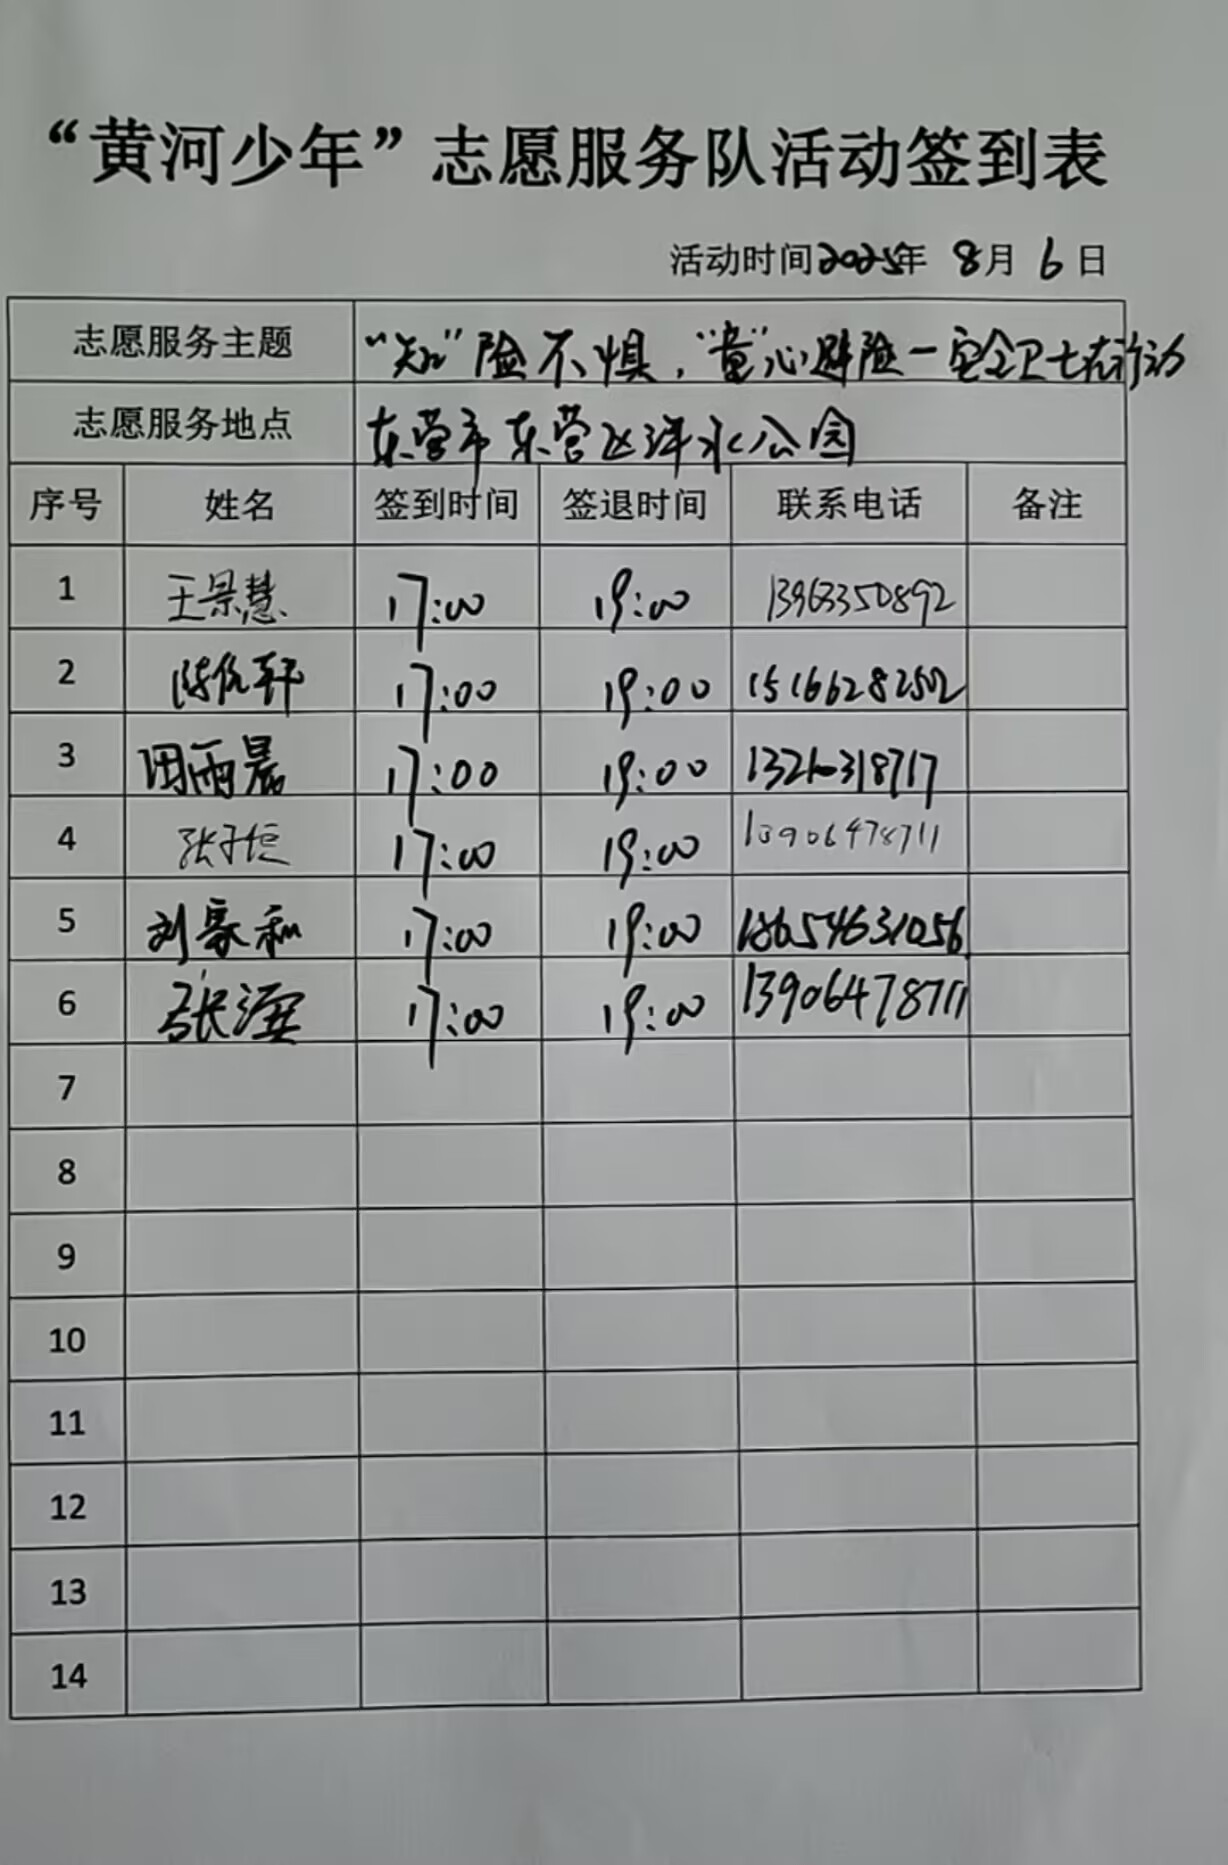 “黄河少年”志愿服务队活动签到表
活动时间2025年 8月 6日
志愿服务主题 “知”险不惧，“童”心避险一安全卫士在行动
志愿服务地点 东营市东营区洋水公园
序号 姓名 签到时间 签退时间 联系电话 备注
1 王景慧 17:00 19:00 13963350892
2 17:00 19:00 15166282502
3 田雨晨 17:00 19:00
4 张子恒 17:00 19:00 13906478711
5 刘家和 17:00 19:00 18654631056
6 17:00 19:00 13906478711
7
8
9
10
11
12
13
14